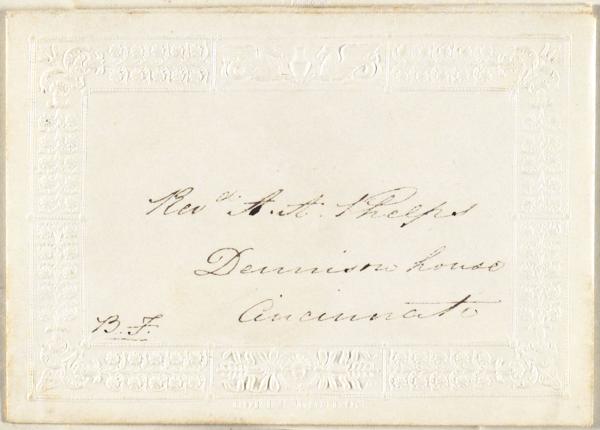 Revd. A. A. Phelps
Dennison house
Cincinnato
B. F.